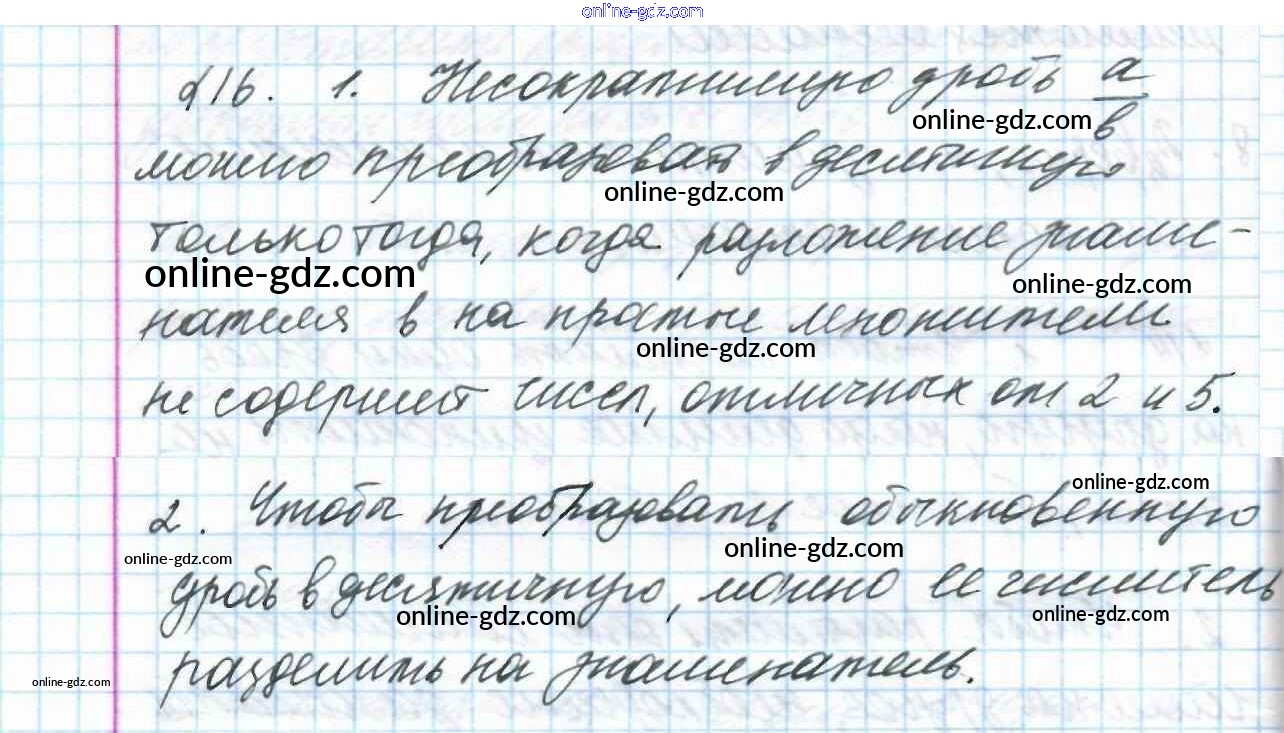 online-gdz.com
§16. 1. Несократимую дробь a/b
online-gdz.com
можно преобразовать в десятичную
online-gdz.com
только тогда, когда разложение знаме-
online-gdz.com online-gdz.com
нателя b на простые множители
online-gdz.com
не содержит чисел, отличных от 2 и 5.
online-gdz.com
2. Чтобы преобразовать обыкновенную
online-gdz.com online-gdz.com
дробь в десятичную, можно ее числитель
online-gdz.com online-gdz.com
разделить на знаменатель.
online-gdz.com